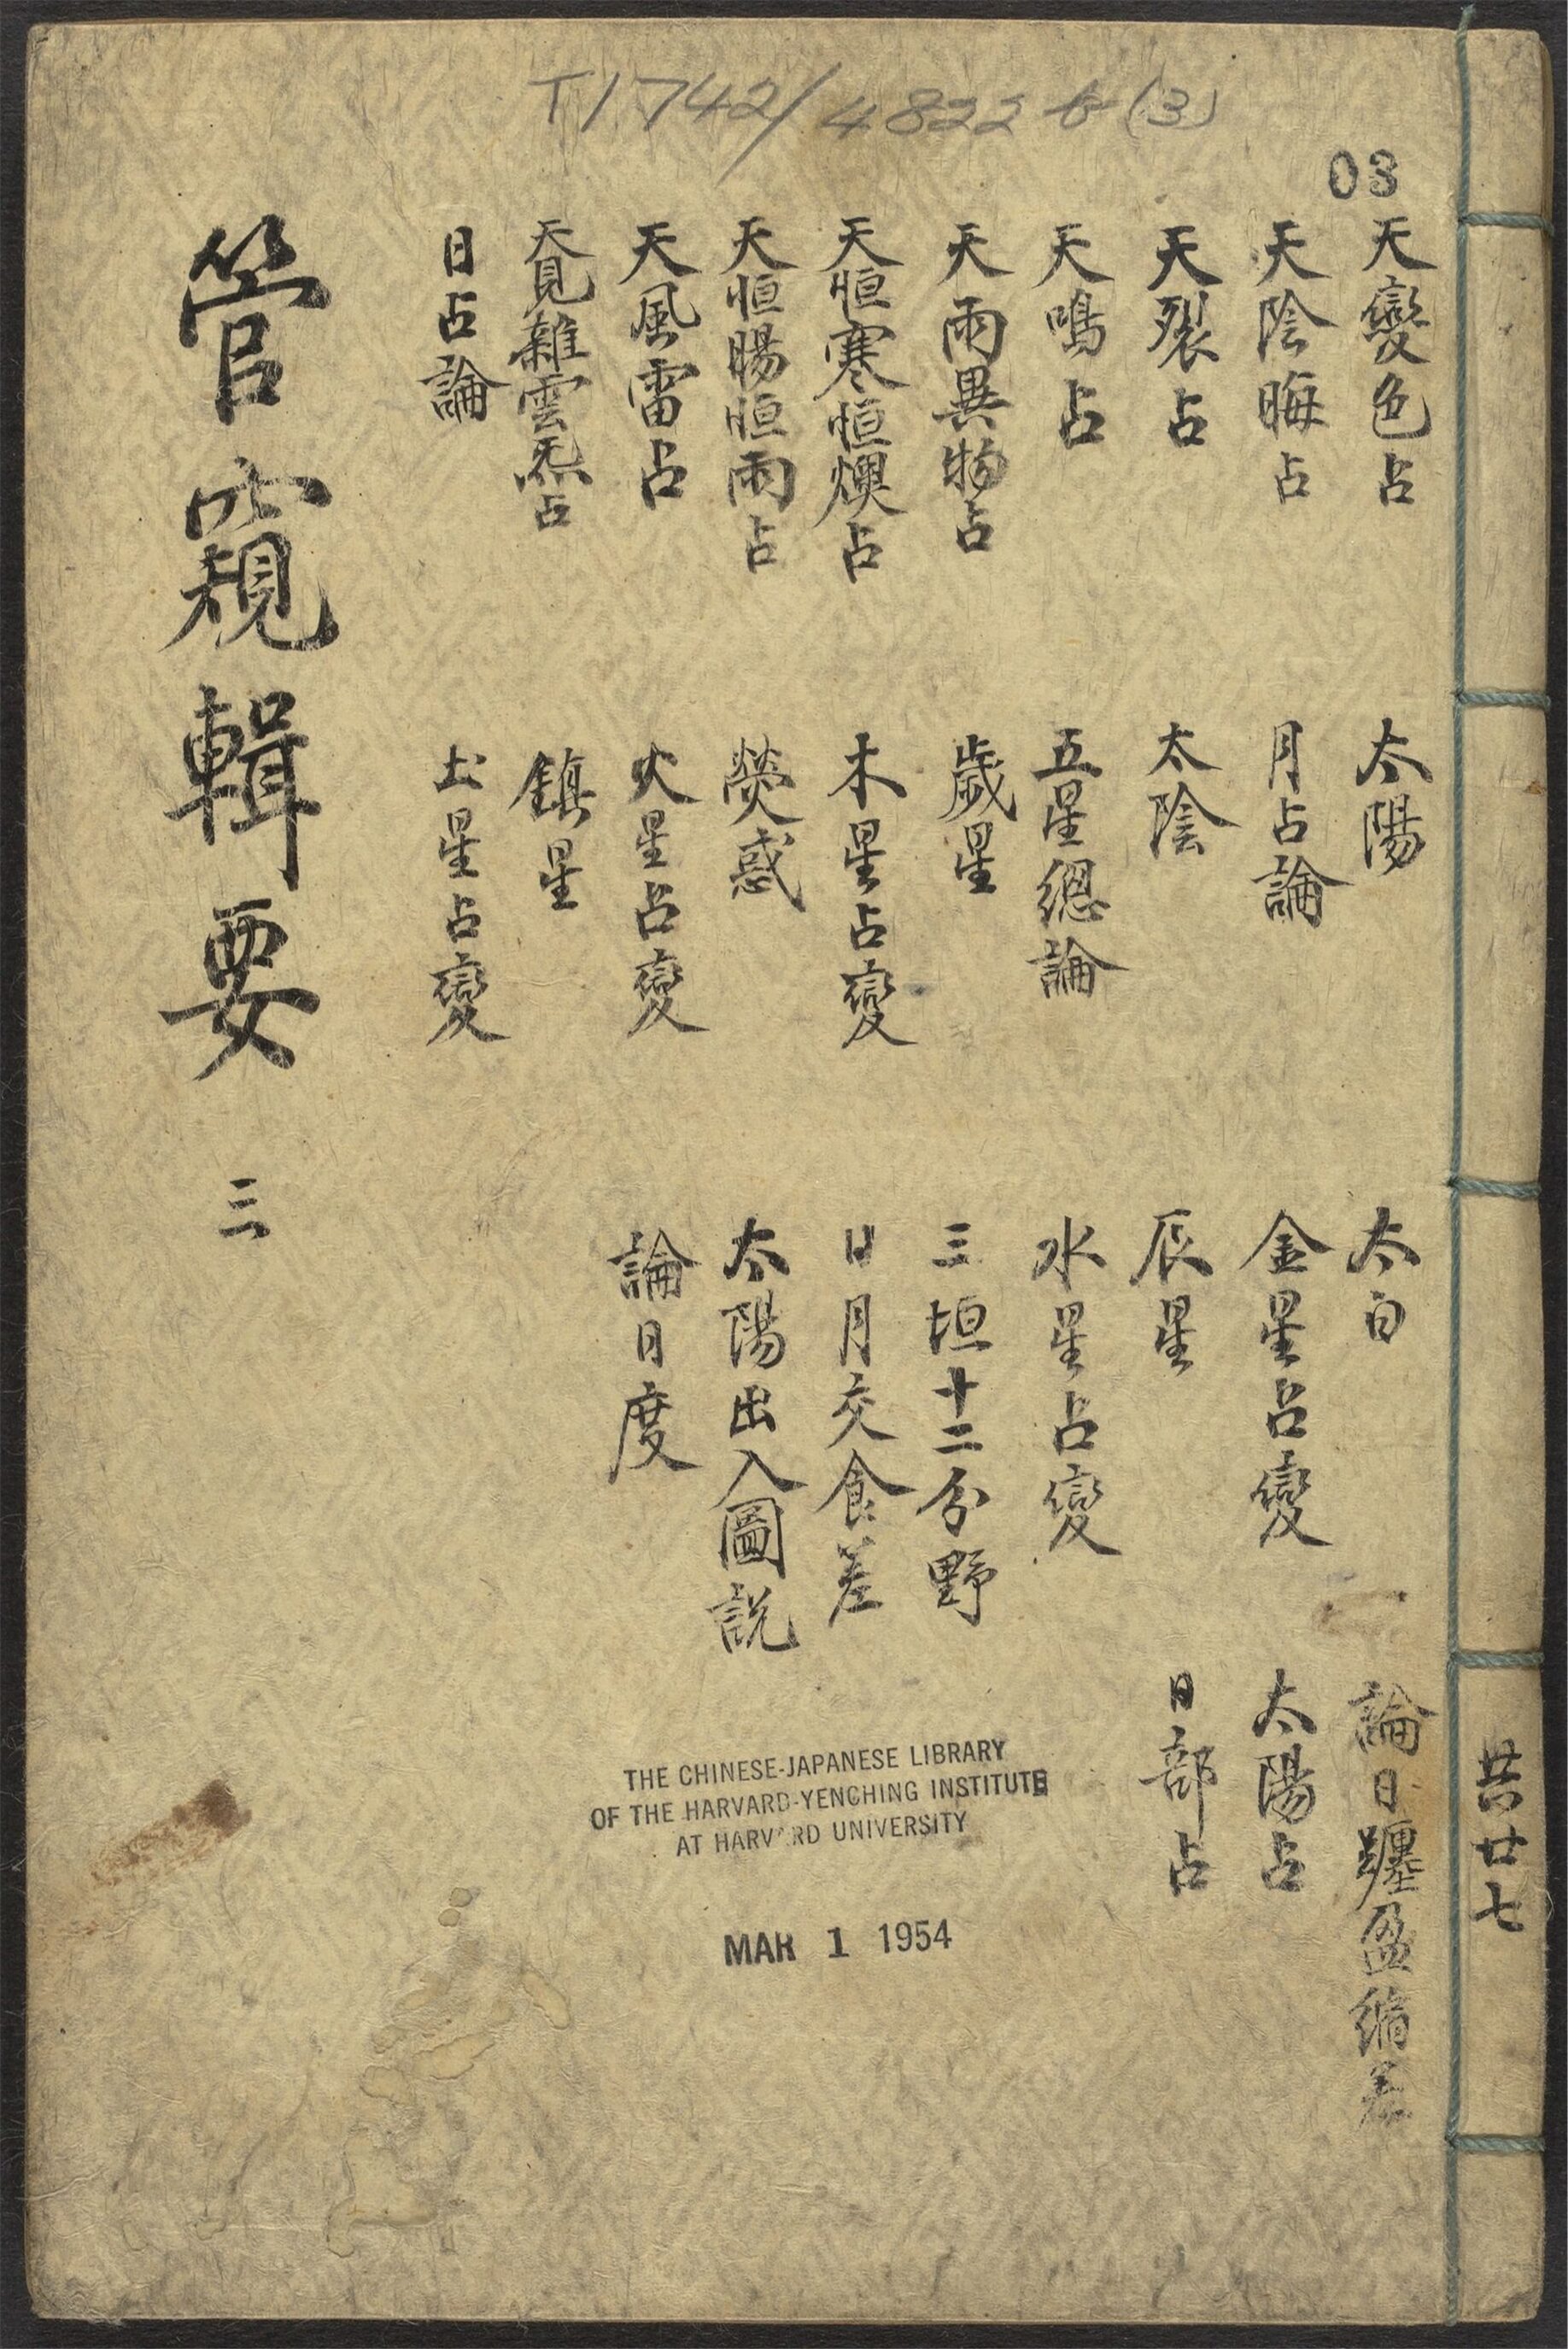 T1742/4822b(3)
03
天變色占
天陰晦占
天裂占
天鳴占
天雨異物占
天恒寒恒燠占
天恒暘恒雨占
天風雷占
天見雜雲炁占
日占論
太陽
月占論
太陰
五星總論
歲星
木星占變
熒惑
火星占變
鎮星
土星占變
太白
金星占變
辰星
水星占變
三垣十二分野
日月交食差
太陽出入圖説
論日度
論日躔盈縮差
太陽占
日部占
管窺輯要 三
共廿七
THE CHINESE-JAPANESE LIBRARY
OF THE HARVARD-YENCHING INSTITUTE
AT HARVARD UNIVERSITY
MAR 1 1954